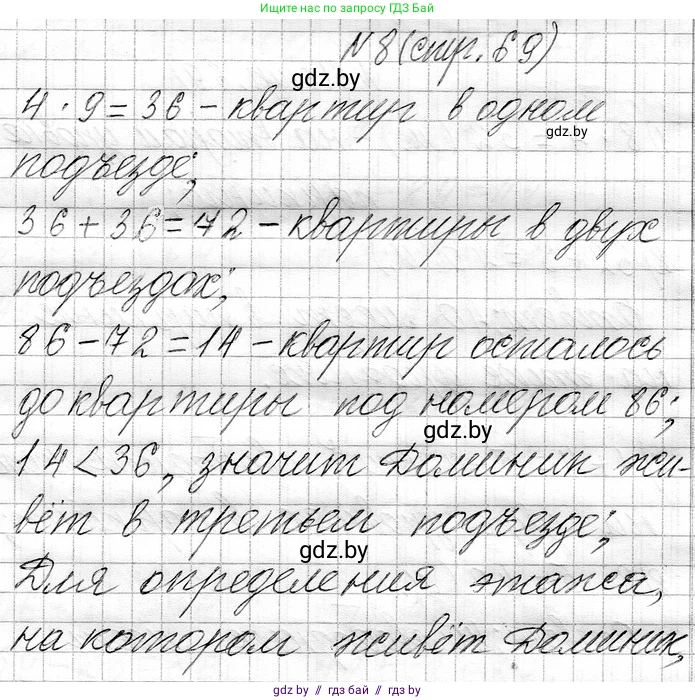 Ищите нас по доменам ГДЗ Бай
N8(стр. 69)
gdz.by
4 · 9 = 36 - квартир в одном
gdz.by
подъезде;
36 + 36 = 72 - квартиры в двух
подъездах;
86 - 72 = 14 - квартир осталось
до квартиры под номером 86;
gdz.by
14 < 36, значит Доминик жи-
вёт в третьем подъезде;
gdz.by
Для определения этажа,
на котором живёт Доминик,
gdz.by // gdz.by // gdz.by